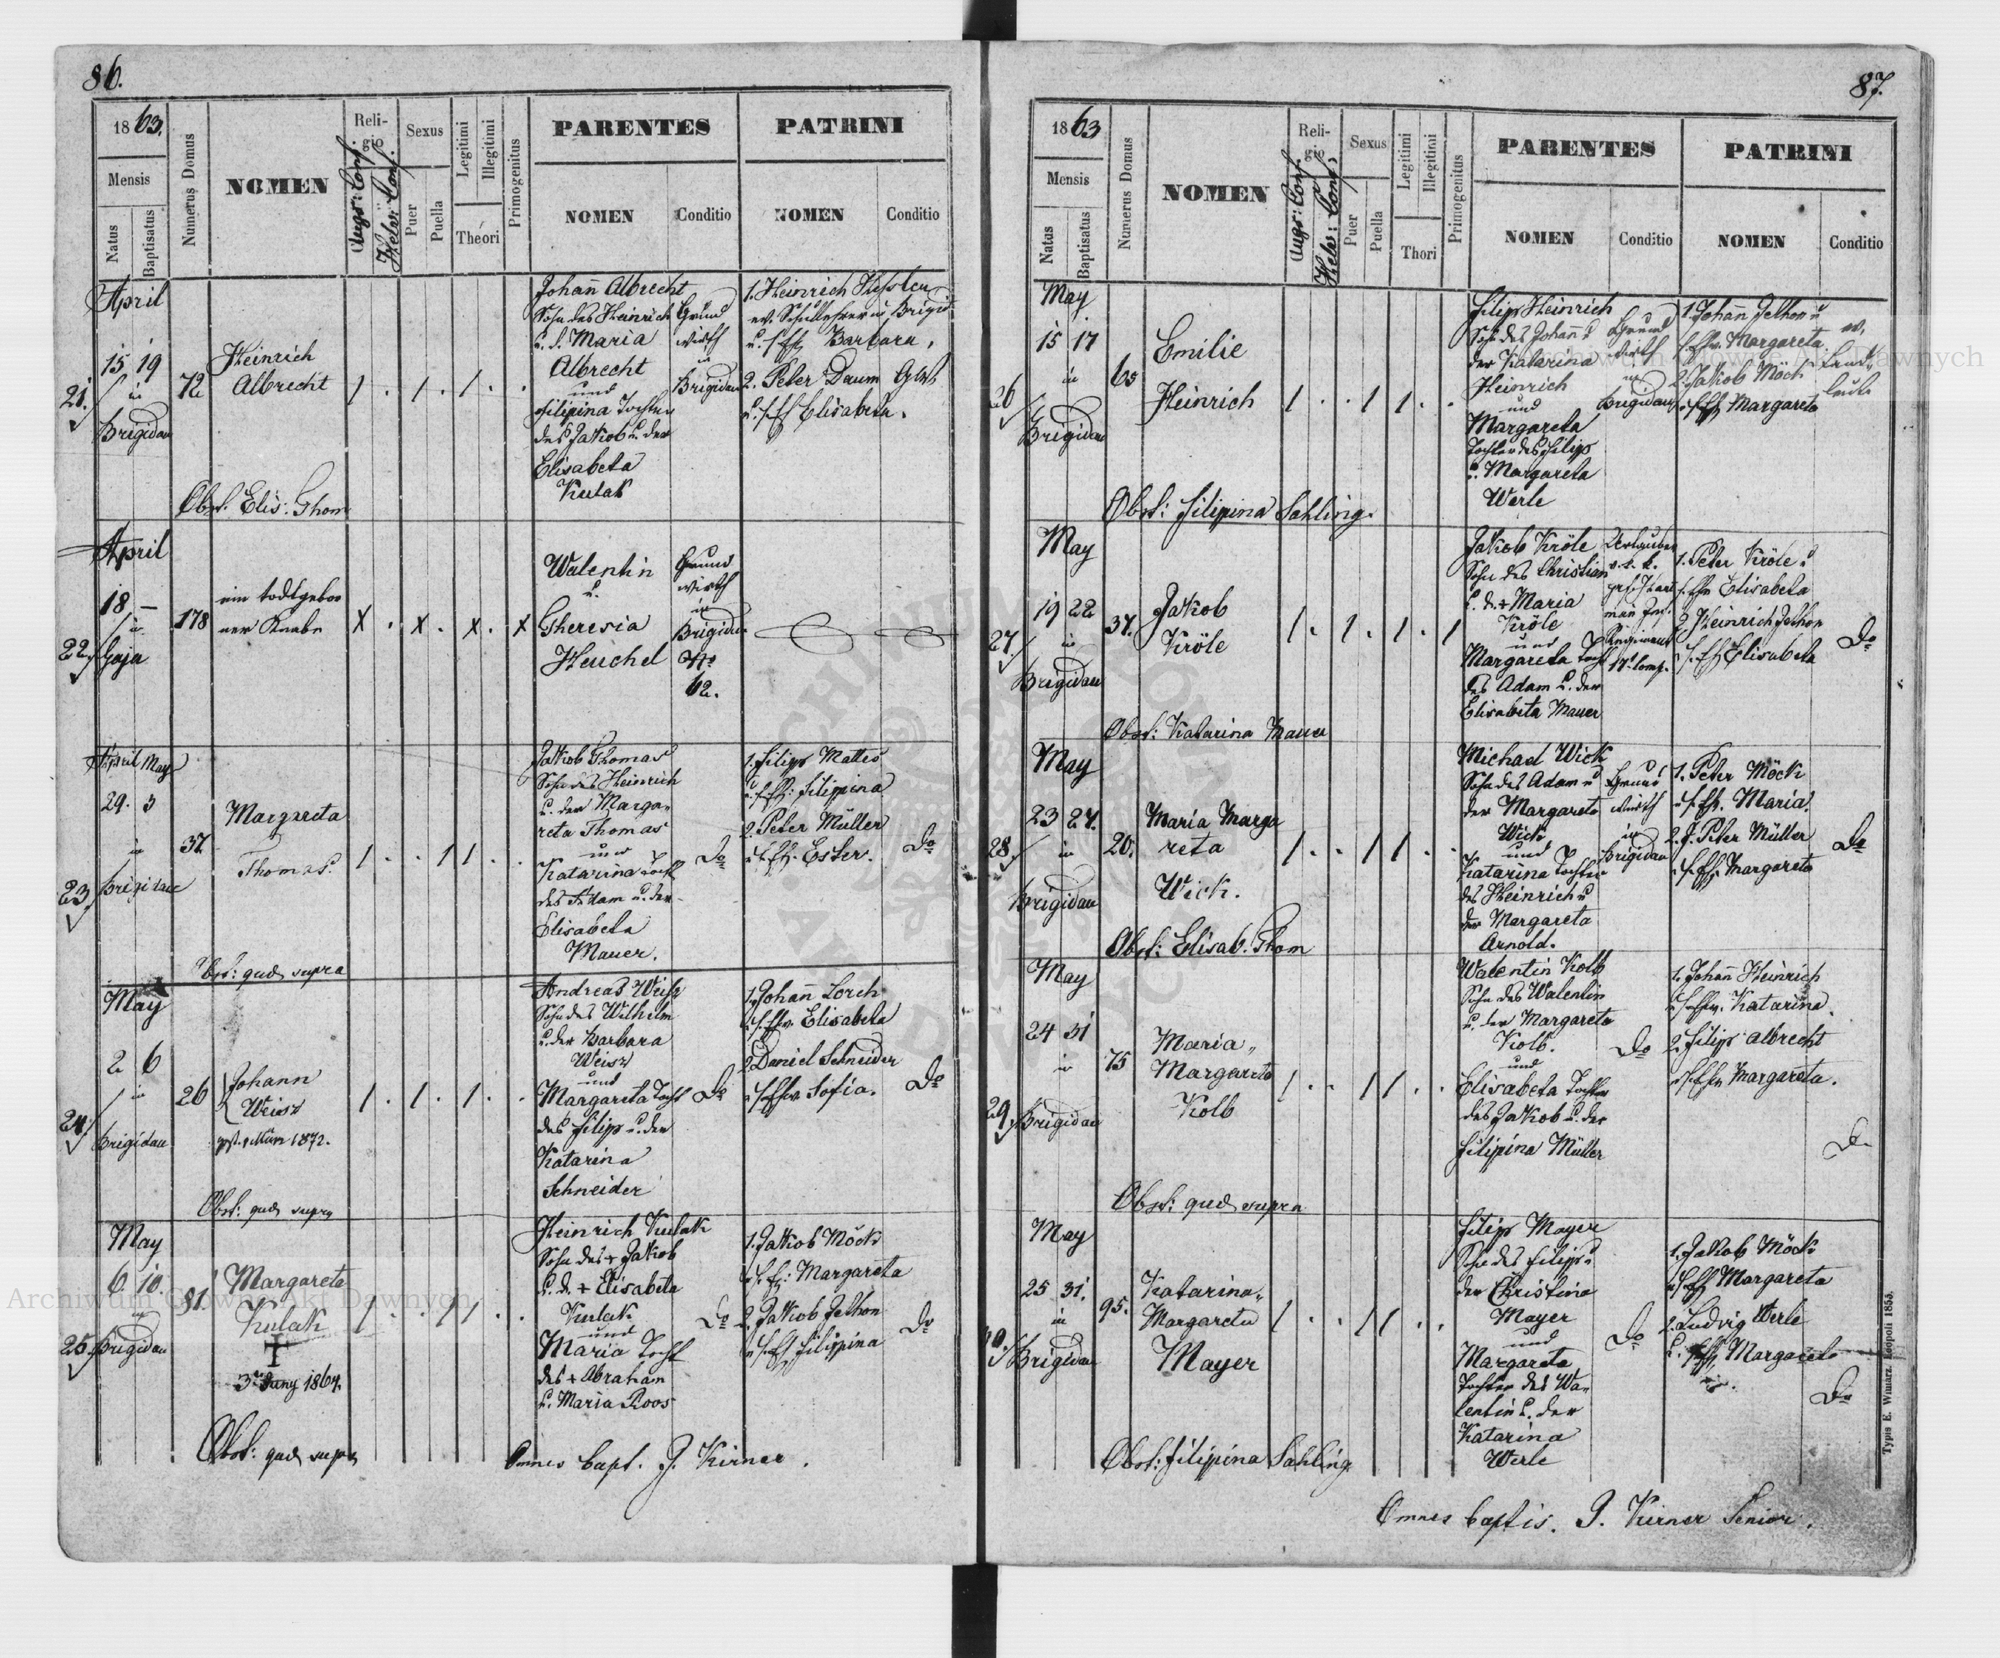 86.
1863.
Mensis
Natus
Baptisatus
Numerus Domus
NOMEN
Religio
Augs: Conf.
Helv: Conf.
Sexus
Puer
Puella
Legitimi
Illegitimi
Thori
Primogenitus
PARENTES
NOMEN
Conditio
PATRINI
NOMEN
Conditio
April
15 19
in
21.
Brigidau
72
Heinrich
Albrecht
Johann Albrecht
Sohn des Heinrich
u. d. Maria
Albrecht
und
Filipina Tochter
des Jakob u. der
Elisabeta
Kulak
Grund
wirth
in
Brigidau
1. Heinrich
ev. Schullehrer in Brigid
u. s. Eh. Barbara,
2. Peter Daum
u. s. Eh Elisabeta.
Obst. Elis: Thom
April
18 —
in
22.
Gaja
178
ein todtgebor
ner Knabe
Walentin
u.
Theresia
Heuchel
Grund
wirth
in
Brigidau
No
62.
April May
29. 3
in
23.
Brigidau
37.
Margareta
Thomas.
Jakob Thomas
Sohn des Heinrich
u. der Marga-
reta Thomas
und
Katarina Tocht
des Adam u. der
Elisabeta
Mauer.
Do
1. Filipp Mattes
u. s. Eh: Filippina
2. Peter Müller
u. s. Eh. Ester.
Do
Obst: quae supra
May
2 6
in
24.
Brigidau
26
Johann
Weisz
1872.
Andreas Weisz
Sohn des Wilhelm
u. der Barbara
Weisz
und
Margareta Tocht
des Filip u. der
Katarina
Schneider
Do
1. Johann Lorch
u. s. Ehw Elisabeta
2. Daniel Schneider
u. s. Ehw Sofia.
Do
Obst: quae supra
May
6 10.
in
25.
Brigidau
81.
Margareta
Kulak
3. Juny 1864.
Heinrich Kulak
Sohn des + Jakob
u. d. + Elisabeta
Kulak
und
Maria Tocht
des + Abraham
u. Maria Roos
Do
1. Jakob Möck
u. s. Eh: Margareta
2. Jakob Jethon
u. s. Eh Filippina
Do
Obst: quae supra
Omnes bapt. J. Kirner.
87.
1863
Mensis
Natus
Baptisatus
Numerus Domus
NOMEN
Religio
Augs: Conf.
Helv: Conf:
Sexus
Puer
Puella
Legitimi
Illegitimi
Thori
Primogenitus
PARENTES
NOMEN
Conditio
PATRINI
NOMEN
Conditio
May
15 17
in
26
Brigidau
65
Emilie
Heinrich
Filip Heinrich
Sohn des Johann u
der Katarina
Heinrich
und
Margareta
Tochter des Filipp
u. Margareta
Werle
Grund
wirth
in
Brigidau
1. Johann Jethon u
s. Ehw. Margareta
2. Jakob Möck
u s. Eh Margareta
ev.
Land-
leute
Obst: Filipina Sahling.
May
19 22
in
27.
Brigidau
37.
Jakob
Kröle
Jakob Kröle
Sohn des Christian
u. d. + Maria
Kröle
und
Margareta Tocht
des Adam u. der
Elisabeta Mauer
Urlauber
Regiment
17. Comp.
1. Peter Kröle u
s. Ehw Elisabeta
2. Heinrich Jethon
u. s. Eh Elisabeta
Do
Obst: Katarina Mauer
May
23 27.
in
28.
Brigidau
20.
Maria Marga
reta
Wick.
Michael Wick
Sohn des Adam u
der Margareta
Wick
und
Katarina Tochter
des Heinrich u
der Margareta
Arnold.
Grund
wirth
in
Brigidau
1. Peter Möck
u s. Eh. Maria.
2. J. Peter Müller
u. s. Eh. Margareta
Do
Obst: Elisab. Thom
May
24 31
in
29.
Brigidau
75
Maria,,
Margareta
Kolb
Walentin Kolb
Sohn des Walentin
u. der Margareta
Kolb.
und
Elisabeta Tochter
des Jakob u. der
Filipina Müller
Do
1. Johann Heinrich
u s. Ehw. Katarina.
2. Filipp Albrecht
u s. Ehw Margareta.
Do
Obst: quae supra
May
25 31.
in
30.
Brigidau
95.
Katarina,,
Margareta
Mayer
Filip Mayer
Sohn des Filipp u
der Christina
Mayer
und
Margareta
Tochter des Wa-
lentin u. der
Katarina
Werle
Do
1. Jakob Möck
u s Eh Margareta
2. Ludvig Werle
u. s. Eh Margareta
Do
Obst: Filippina Sahling
Omnes baptis. J. Kirner Senior.
Typis E. Winiarz. Leopoli 1855.
Archiwum Główne Akt Dawnych
Archiwum Główne Akt Dawnych